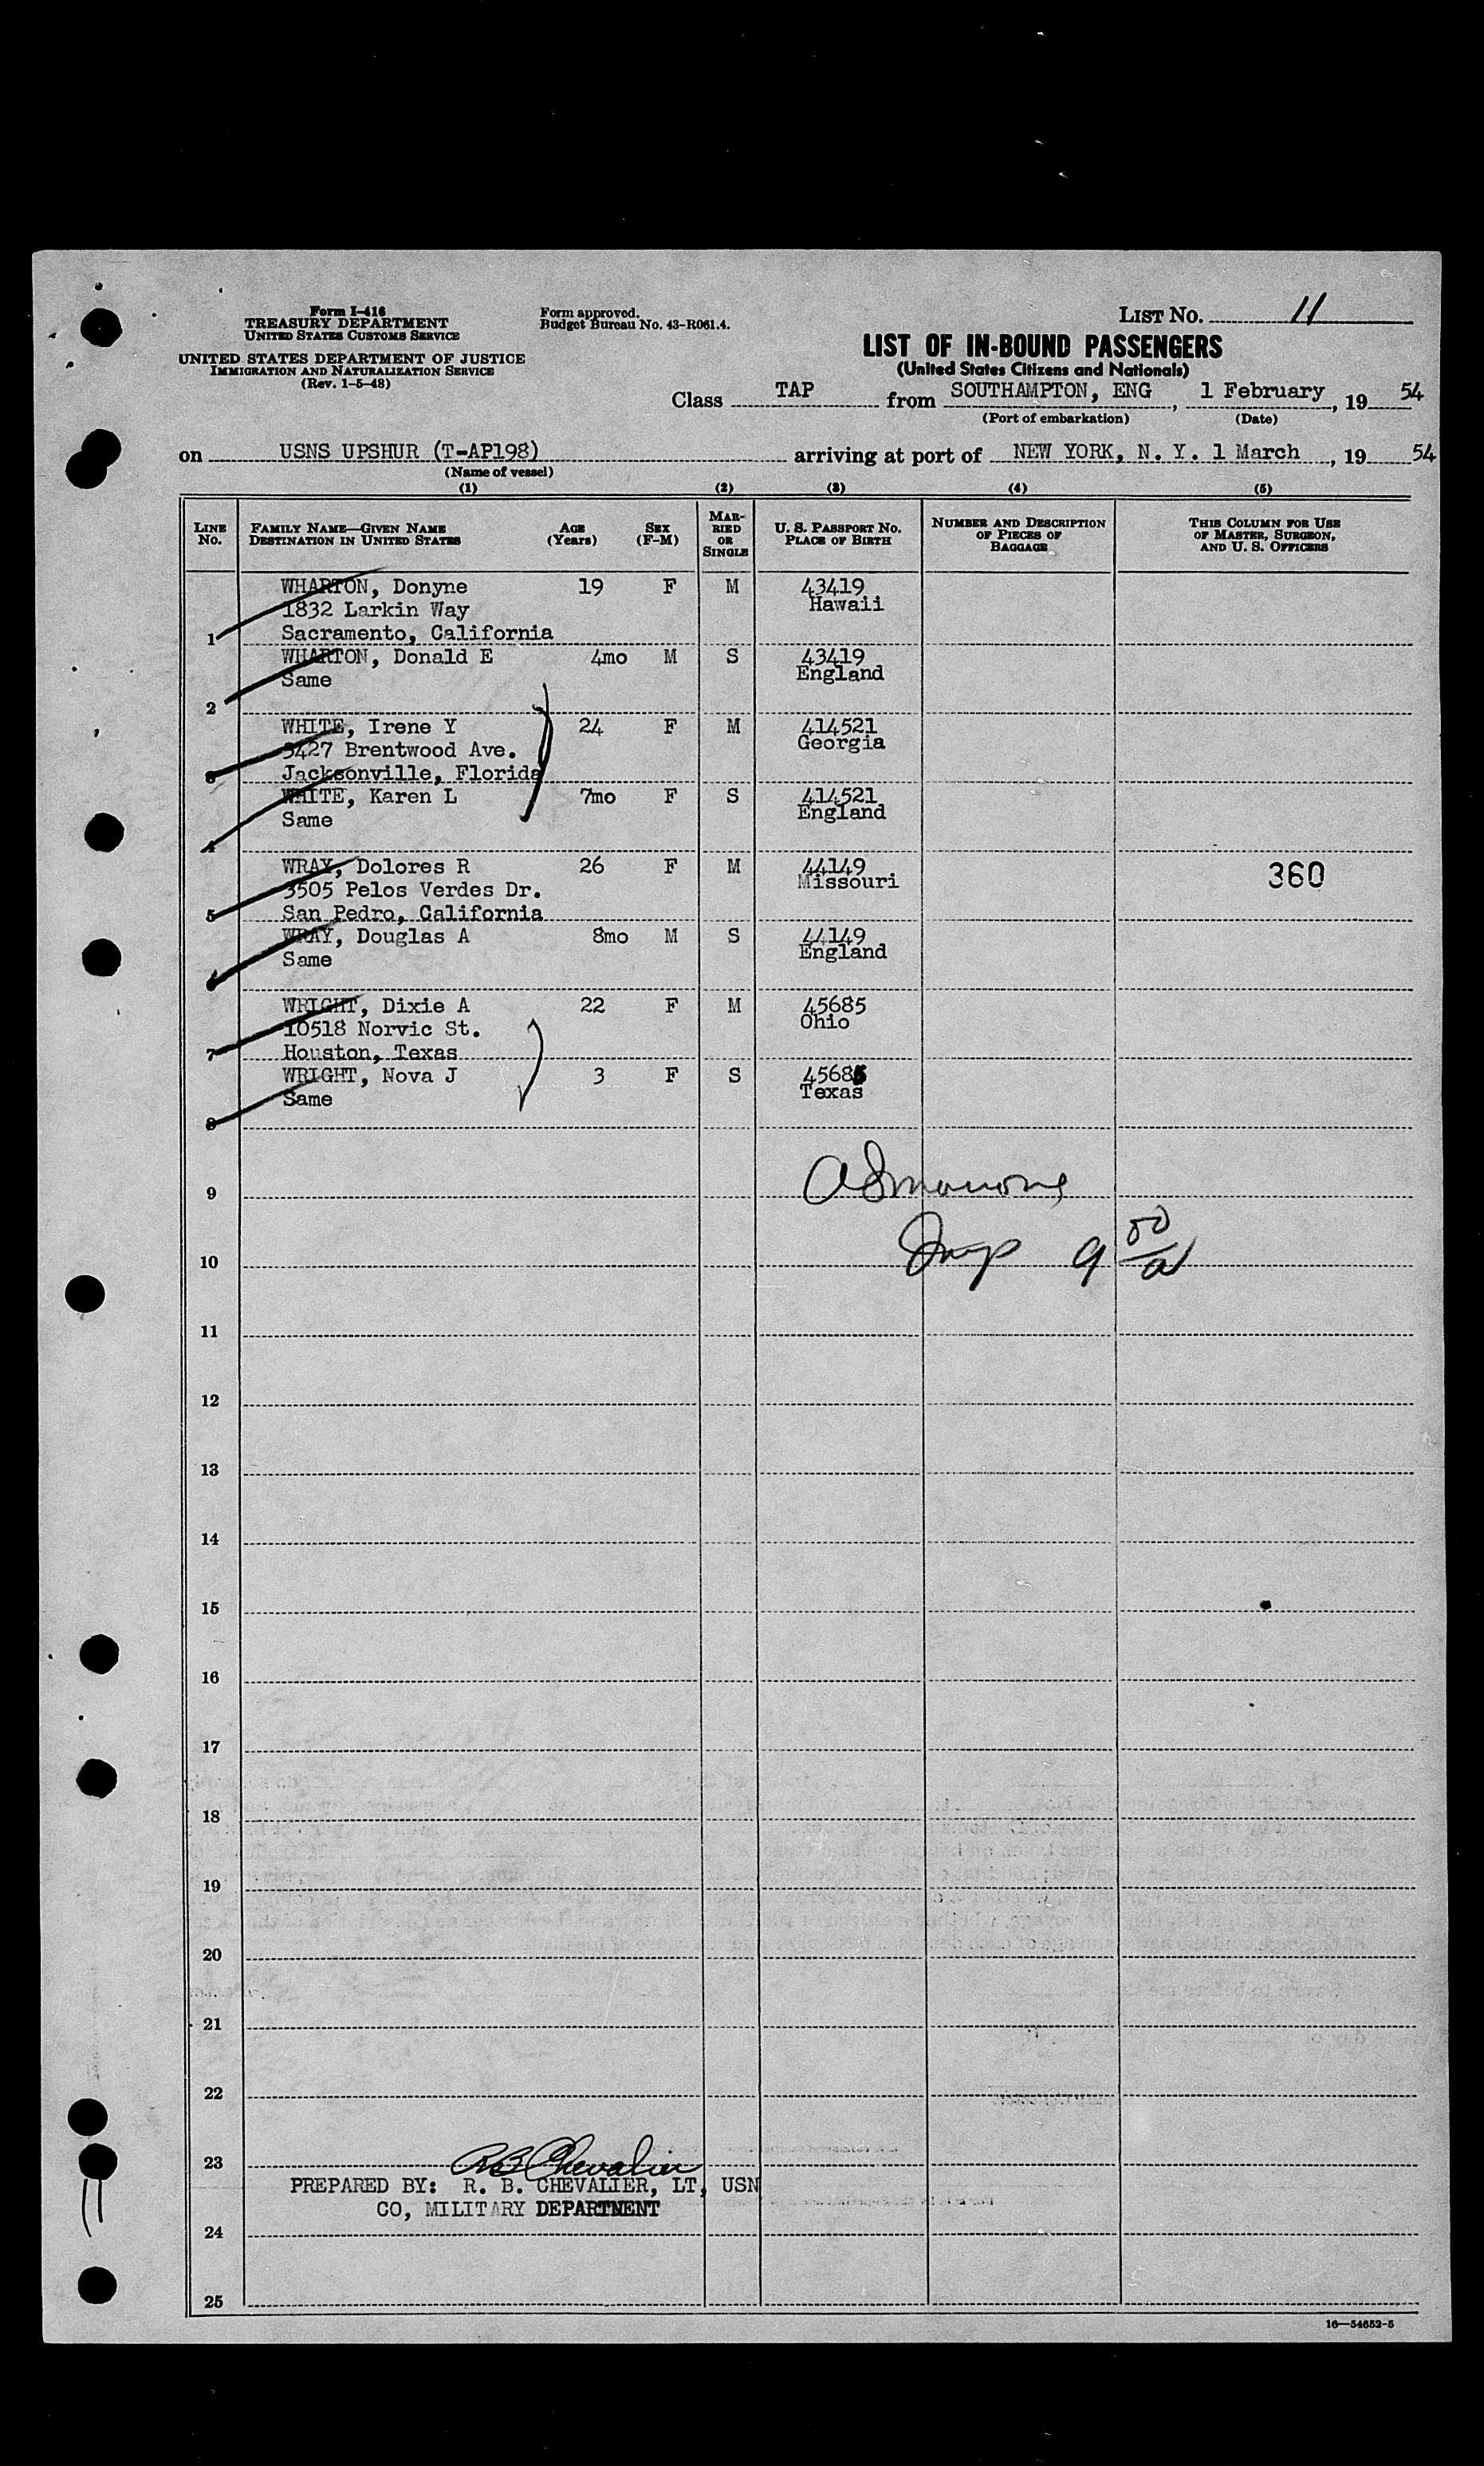 Form I-416
TREASURY DEPARTMENT
UNITED STATES CUSTOMS SERVICE
UNITED STATES DEPARTMENT OF JUSTICE
IMMIGRATION AND NATURALIZATION SERVICE
(Rev. 1-5-48)
Form approved.
Budget Bureau No. 43-R061.4.
LIST NO. 11
LIST OF IN-BOUND PASSENGERS
(United States Citizens and Nationals)
Class TAP from SOUTHAMPTON, ENG, 1 February, 19 54
(Port of embarkation) (Date)
on USNS UPSHUR (T-AP198) arriving at port of NEW YORK, N. Y. 1 March, 19 54
(Name of vessel)
(1) (2) (3) (4) (5)
LINE NO. FAMILY NAME—GIVEN NAME DESTINATION IN UNITED STATES AGE (Years) SEX (F-M) MARRIED OR SINGLE U. S. PASSPORT NO. PLACE OF BIRTH NUMBER AND DESCRIPTION OF PIECES OF BAGGAGE THIS COLUMN FOR USE OF MASTER, SURGEON, AND U. S. OFFICERS
WHARTON, Donyne 19 F M 43419
1832 Larkin Way Hawaii
1 Sacramento, California
WHARTON, Donald E 4mo M S 43419
Same England
2
WHITE, Irene Y 24 F M 414521
3427 Brentwood Ave. Georgia
3 Jacksonville, Florida
WHITE, Karen L 7mo F S 414521
Same England
4
WRAY, Dolores R 26 F M 44149 360
3505 Pelos Verdes Dr. Missouri
5 San Pedro, California
WRAY, Douglas A 8mo M S 44149
Same England
6
WRIGHT, Dixie A 22 F M 45685
10518 Norvic St. Ohio
7 Houston, Texas
WRIGHT, Nova J 3 F S 45685
Same Texas
8
9
10 Insp 9 50/a
11
12
13
14
15
16
17
18
19
20
21
22
23 RB Chevalier
PREPARED BY: R. B. CHEVALIER, LT, USN
CO, MILITARY DEPARTMENT
24
25
16—54652-5